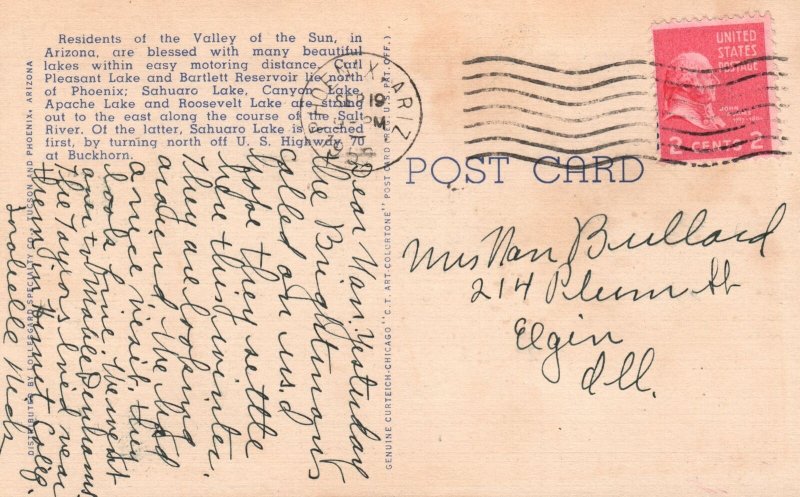 Residents of the Valley of the Sun, in
Arizona, are blessed with many beautiful
lakes within easy motoring distance. Carl
Pleasant Lake and Bartlett Reservoir lie north
of Phoenix; Sahuaro Lake, Canyon Lake,
Apache Lake and Roosevelt Lake are strung
out to the east along the course of the Salt
River. Of the latter, Sahuaro Lake is reached
first, by turning north off U. S. Highway 70
at Buckhorn.
DISTRIBUTED BY LOLLESGARD SPECIALTY CO., TUCSON AND PHOENIX, ARIZONA
Dear Van. Yesterday
the Brightmans
called on us. I
hope they settle
here this winter.
They are looking
around. We had
a nice visit. They
look fine. We went
over to Mabel Denhams
The Taylors lived near
them in the
Inabelle
GENUINE CURTEICH-CHICAGO "C.T. ART-COLORTONE" POST CARD (REG. U.S. PAT. OFF.)
PHOENIX ARIZ.
SEP 19
PM
UNITED
STATES
POSTAGE
JOHN
2 CENTS 2
POST CARD
Mrs Van Bullard
214 Plum St
Elgin
Ill.